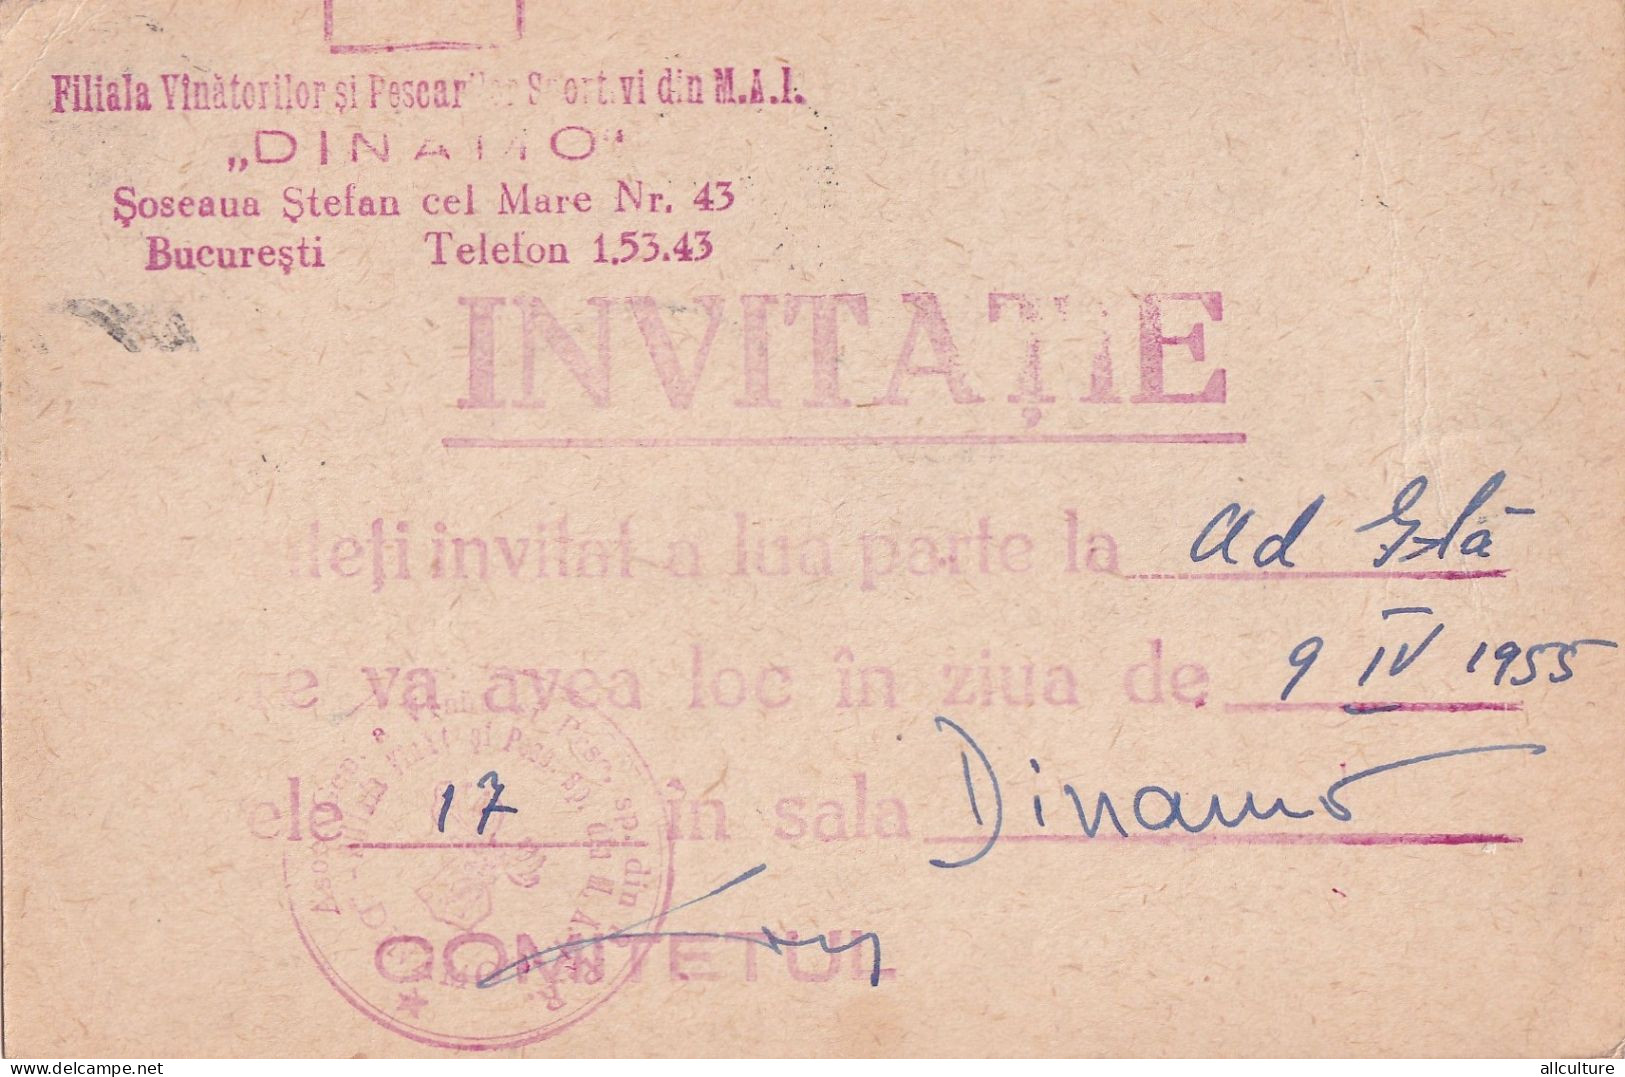 Filiala Vînătorilor și Pescarilor Sportivi din M.A.I.
„DINAMO"
Șoseaua Ștefan cel Mare Nr. 43
București Telefon 1.53.43
INVITAȚIE
invitat a lua parte la ad
va avea loc în ziua de 9 IV 1955
17 în sala Dinamo
COMITETUL
delcampe.net
allculture